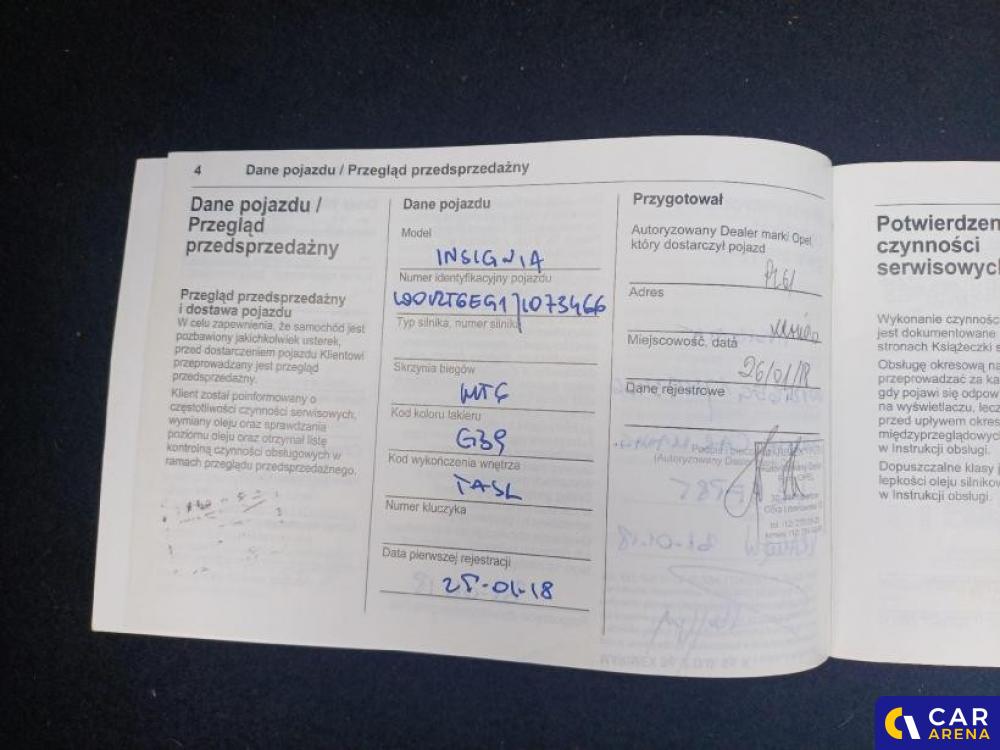 4 Dane pojazdu / Przegląd przedsprzedażny
Dane pojazdu /
Przegląd
przedsprzedażny
Przegląd przedsprzedażny
i dostawa pojazdu
W celu zapewnienia, że samochód jest
pozbawiony jakichkolwiek usterek,
przed dostarczeniem pojazdu Klientowi
przeprowadzany jest przegląd
przedsprzedażny.
Klient został poinformowany o
częstotliwości czynności serwisowych,
wymiany oleju oraz sprawdzania
poziomu oleju oraz otrzymał listę
kontrolną czynności obsługowych w
ramach przeglądu przedsprzedażnego.
Dane pojazdu
Model
INSIGNIA
Numer identyfikacyjny pojazdu
W0VZT6EG1J1073466
Typ silnika, numer silnika
Skrzynia biegów
MT6
Kod koloru lakieru
G39
Kod wykończenia wnętrza
TASL
Numer kluczyka
Data pierwszej rejestracji
25-01-18
Przygotował
Autoryzowany Dealer marki Opel,
który dostarczył pojazd
Adres
Miejscowość, data
26/01/18
Dane rejestrowe
(Autoryzowany Dealer
Potwierdzen
czynności
serwisowych
Wykonanie czynnośc
jest dokumentowane
stronach Książeczki s
Obsługę okresową na
przeprowadzać za ka
gdy pojawi się odpow
na wyświetlaczu, lecz
przed upływem okres
międzyprzeglądowyc
w Instrukcji obsługi.
Dopuszczalne klasy i
lepkości oleju silnikow
w Instrukcji obsługi.
CAR
ARENA